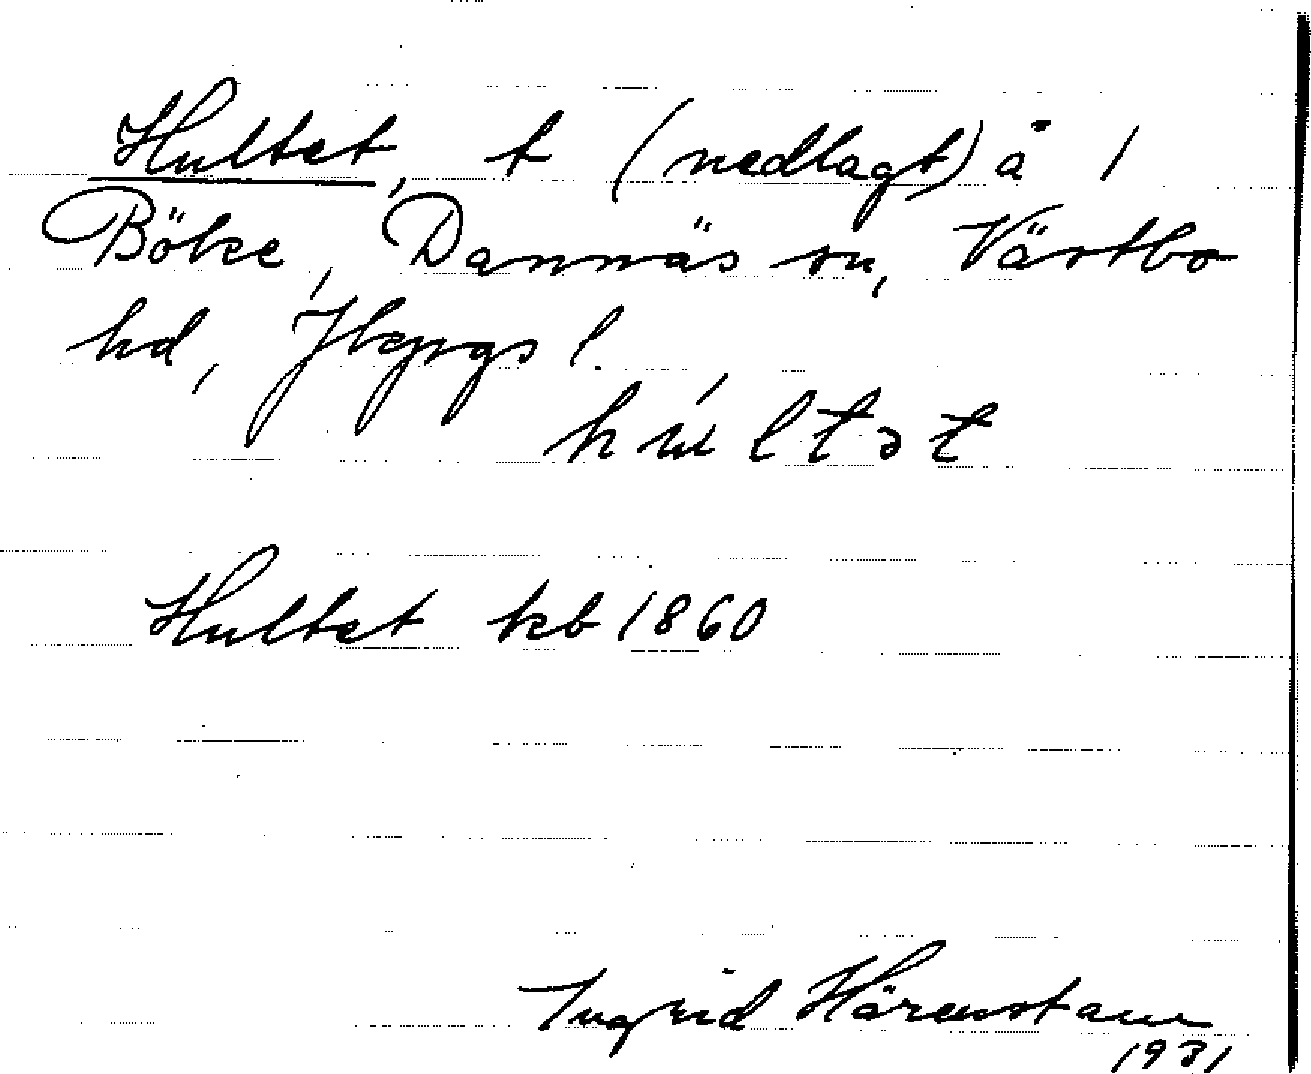 Hultet, t (nedlagt) å 1
Böke, Dannäs sn, Västbo
hd, Jkpgs l.
húltət
Hultet kb 1860
Ingrid Härenstam
1931